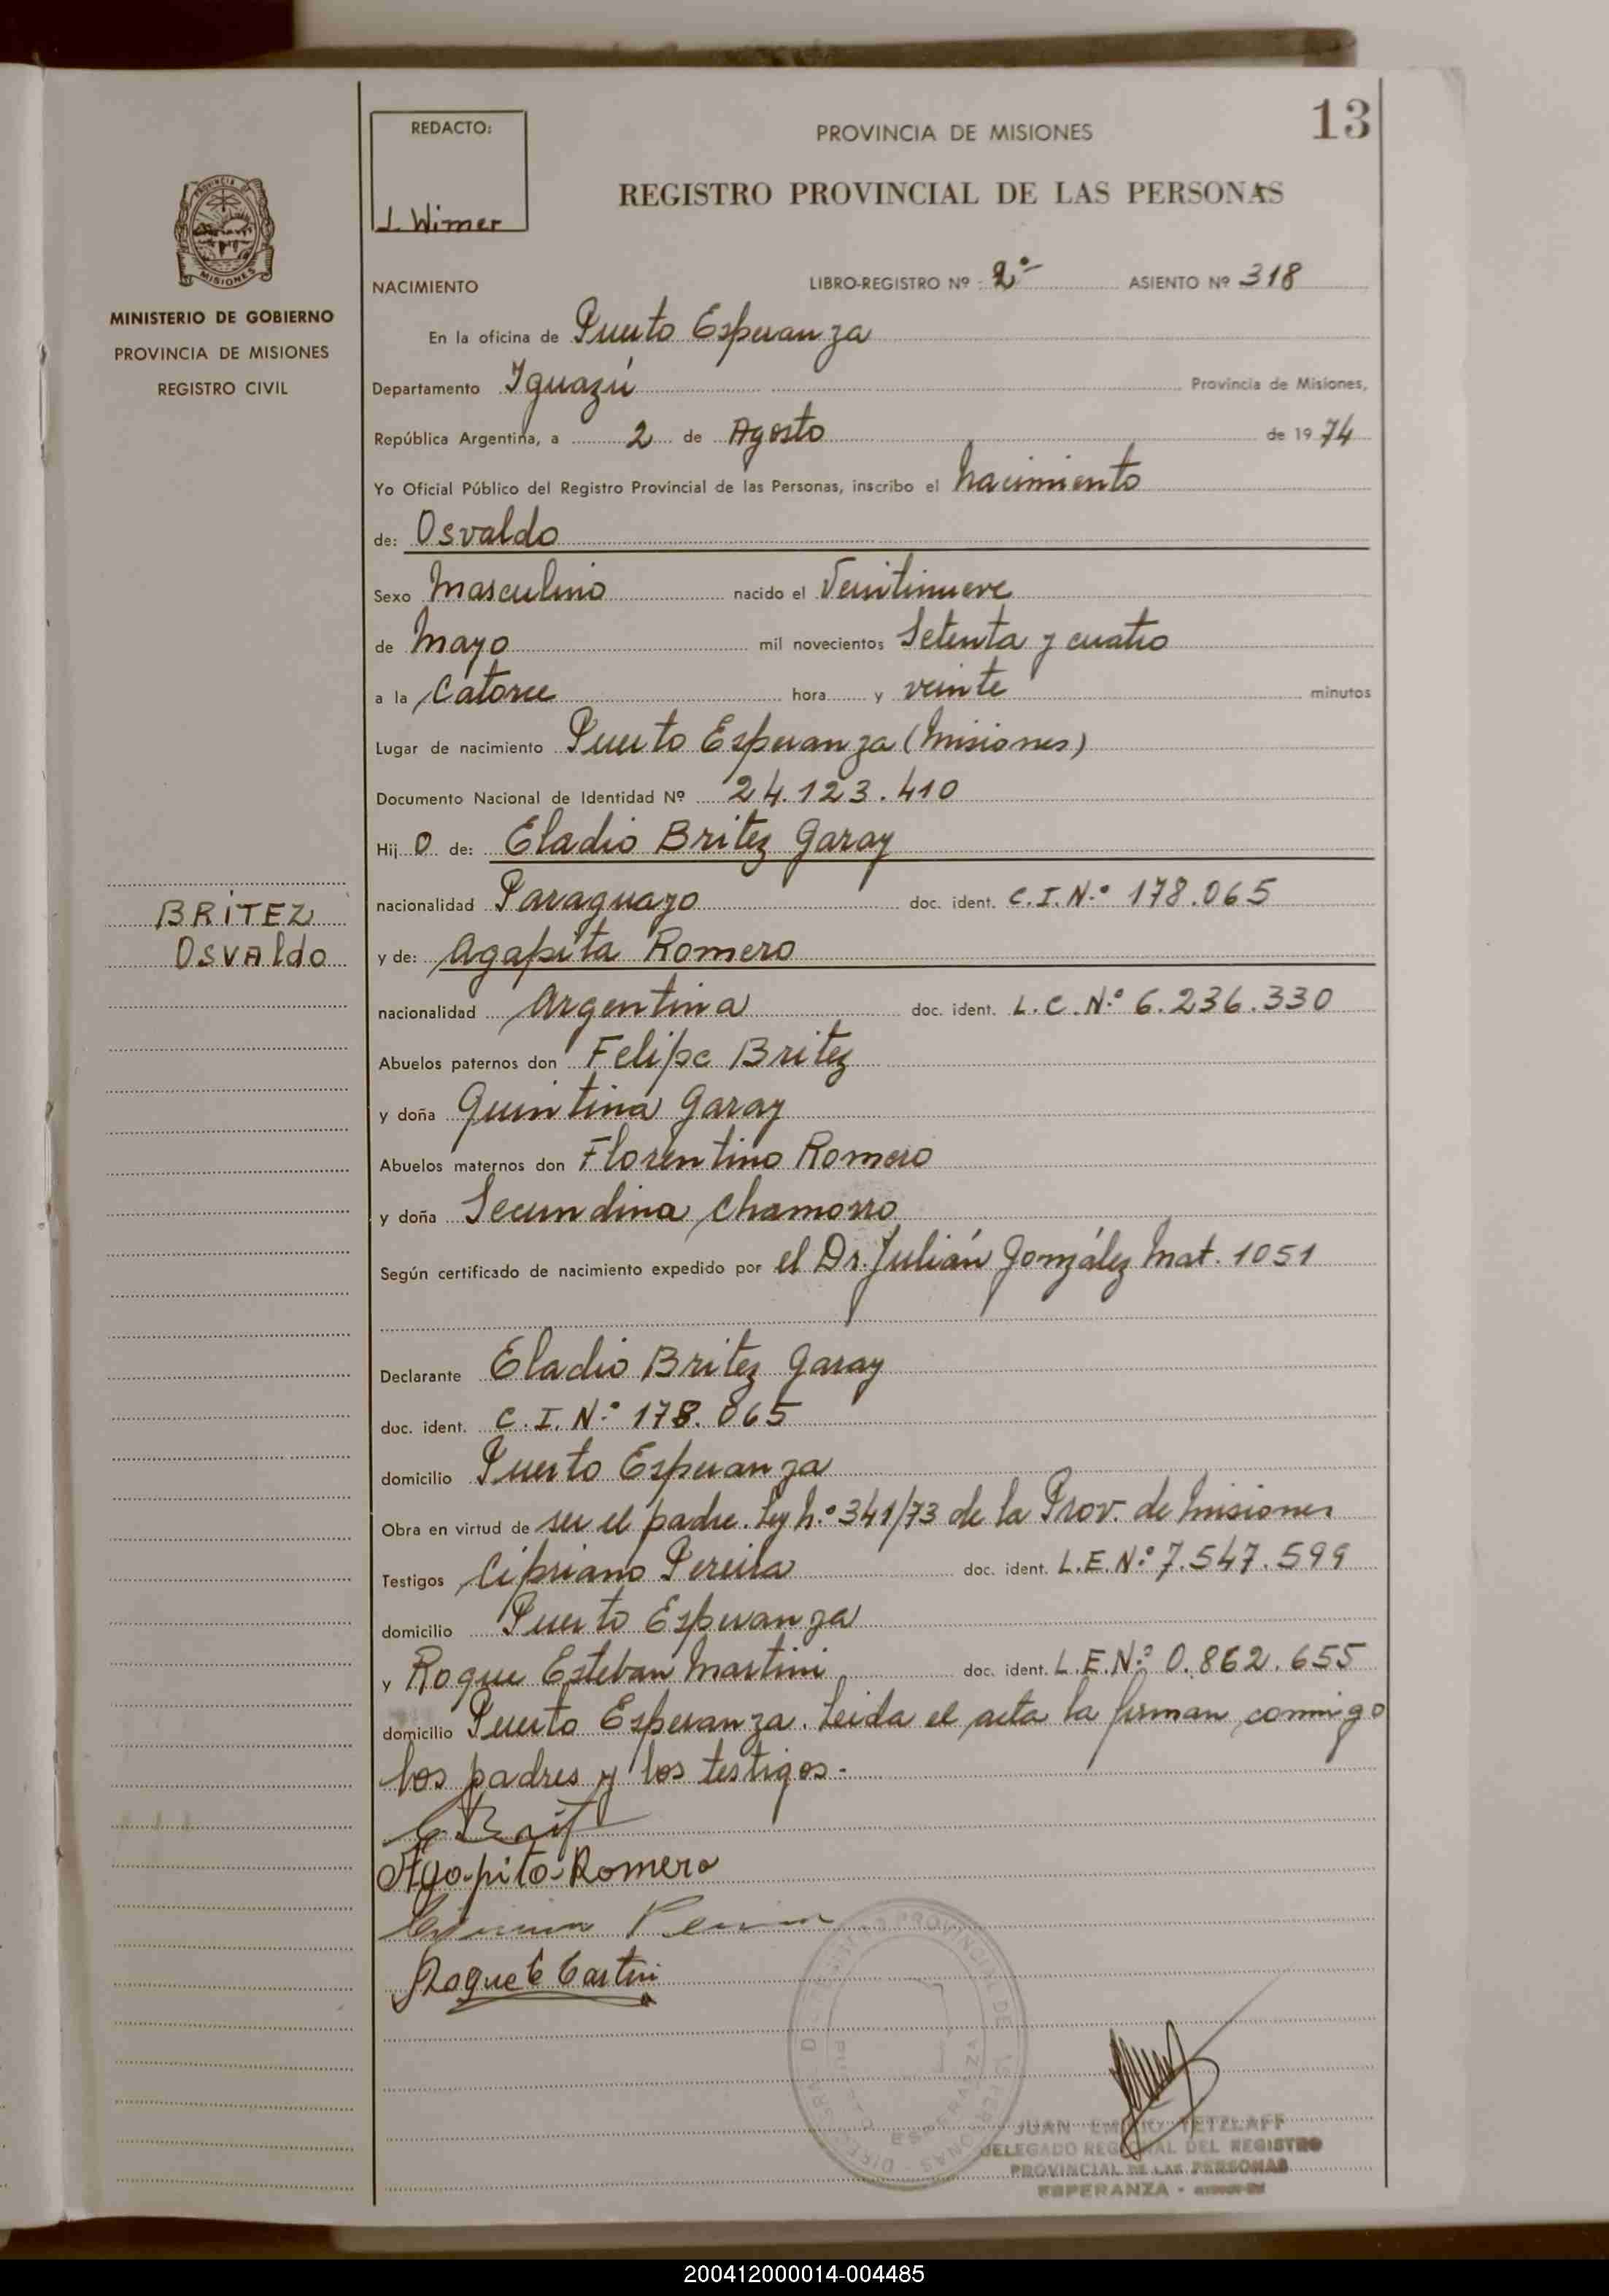 13
REDACTO:
J. Wimer
PROVINCIA DE MISIONES
REGISTRO PROVINCIAL DE LAS PERSONAS
PROVINCIA DE
MISIONES
MINISTERIO DE GOBIERNO
PROVINCIA DE MISIONES
REGISTRO CIVIL
BRITEZ
Osvaldo
NACIMIENTO LIBRO-REGISTRO Nº : 2º- ASIENTO Nº 318
En la oficina de Puerto Esperanza
Departamento Iguazú Provincia de Misiones,
República Argentina, a 2 de Agosto de 19 74
Yo Oficial Público del Registro Provincial de las Personas, inscribo el nacimiento
de: Osvaldo
Sexo Masculino nacido el Veintinueve
de Mayo mil novecientos Setenta y cuatro
a la Catorce hora y veinte minutos
Lugar de nacimiento Puerto Esperanza (Misiones)
Documento Nacional de Identidad Nº 24.123.410
Hij o de: Eladio Britez Garay
nacionalidad Paraguayo doc. ident. C.I.N.º 178.065
y de: Agapita Romero
nacionalidad Argentina doc. ident. L.C.N.º 6.236.330
Abuelos paternos don Felipe Britez
y doña Quintina Garay
Abuelos maternos don Florentino Romero
y doña Secundina Chamorro
Según certificado de nacimiento expedido por el Dr. Julián González Mat. 1051
Declarante Eladio Britez Garay
doc. ident. C.I.N.º 178.065
domicilio Puerto Esperanza
Obra en virtud de ser el padre. Ley N.º 341/73 de la Prov. de Misiones
Testigos Cipriano Pereira doc. ident. L.E.N.º 7.547.599
domicilio Puerto Esperanza
y Roque Esteban Martini doc. ident. L.E.N.º 0.862.655
domicilio Puerto Esperanza. Leida el acta la firman conmigo
los padres y los testigos.-
Agapita Romero
DIRECCION REGISTRO PROVINCIAL DE LAS PERSONAS
PUERTO ESPERANZA
JUAN EMILIO TETZLAFF
DELEGADO REGIONAL DEL REGISTRO
PROVINCIAL DE LAS PERSONAS
ESPERANZA -
200412000014-004485